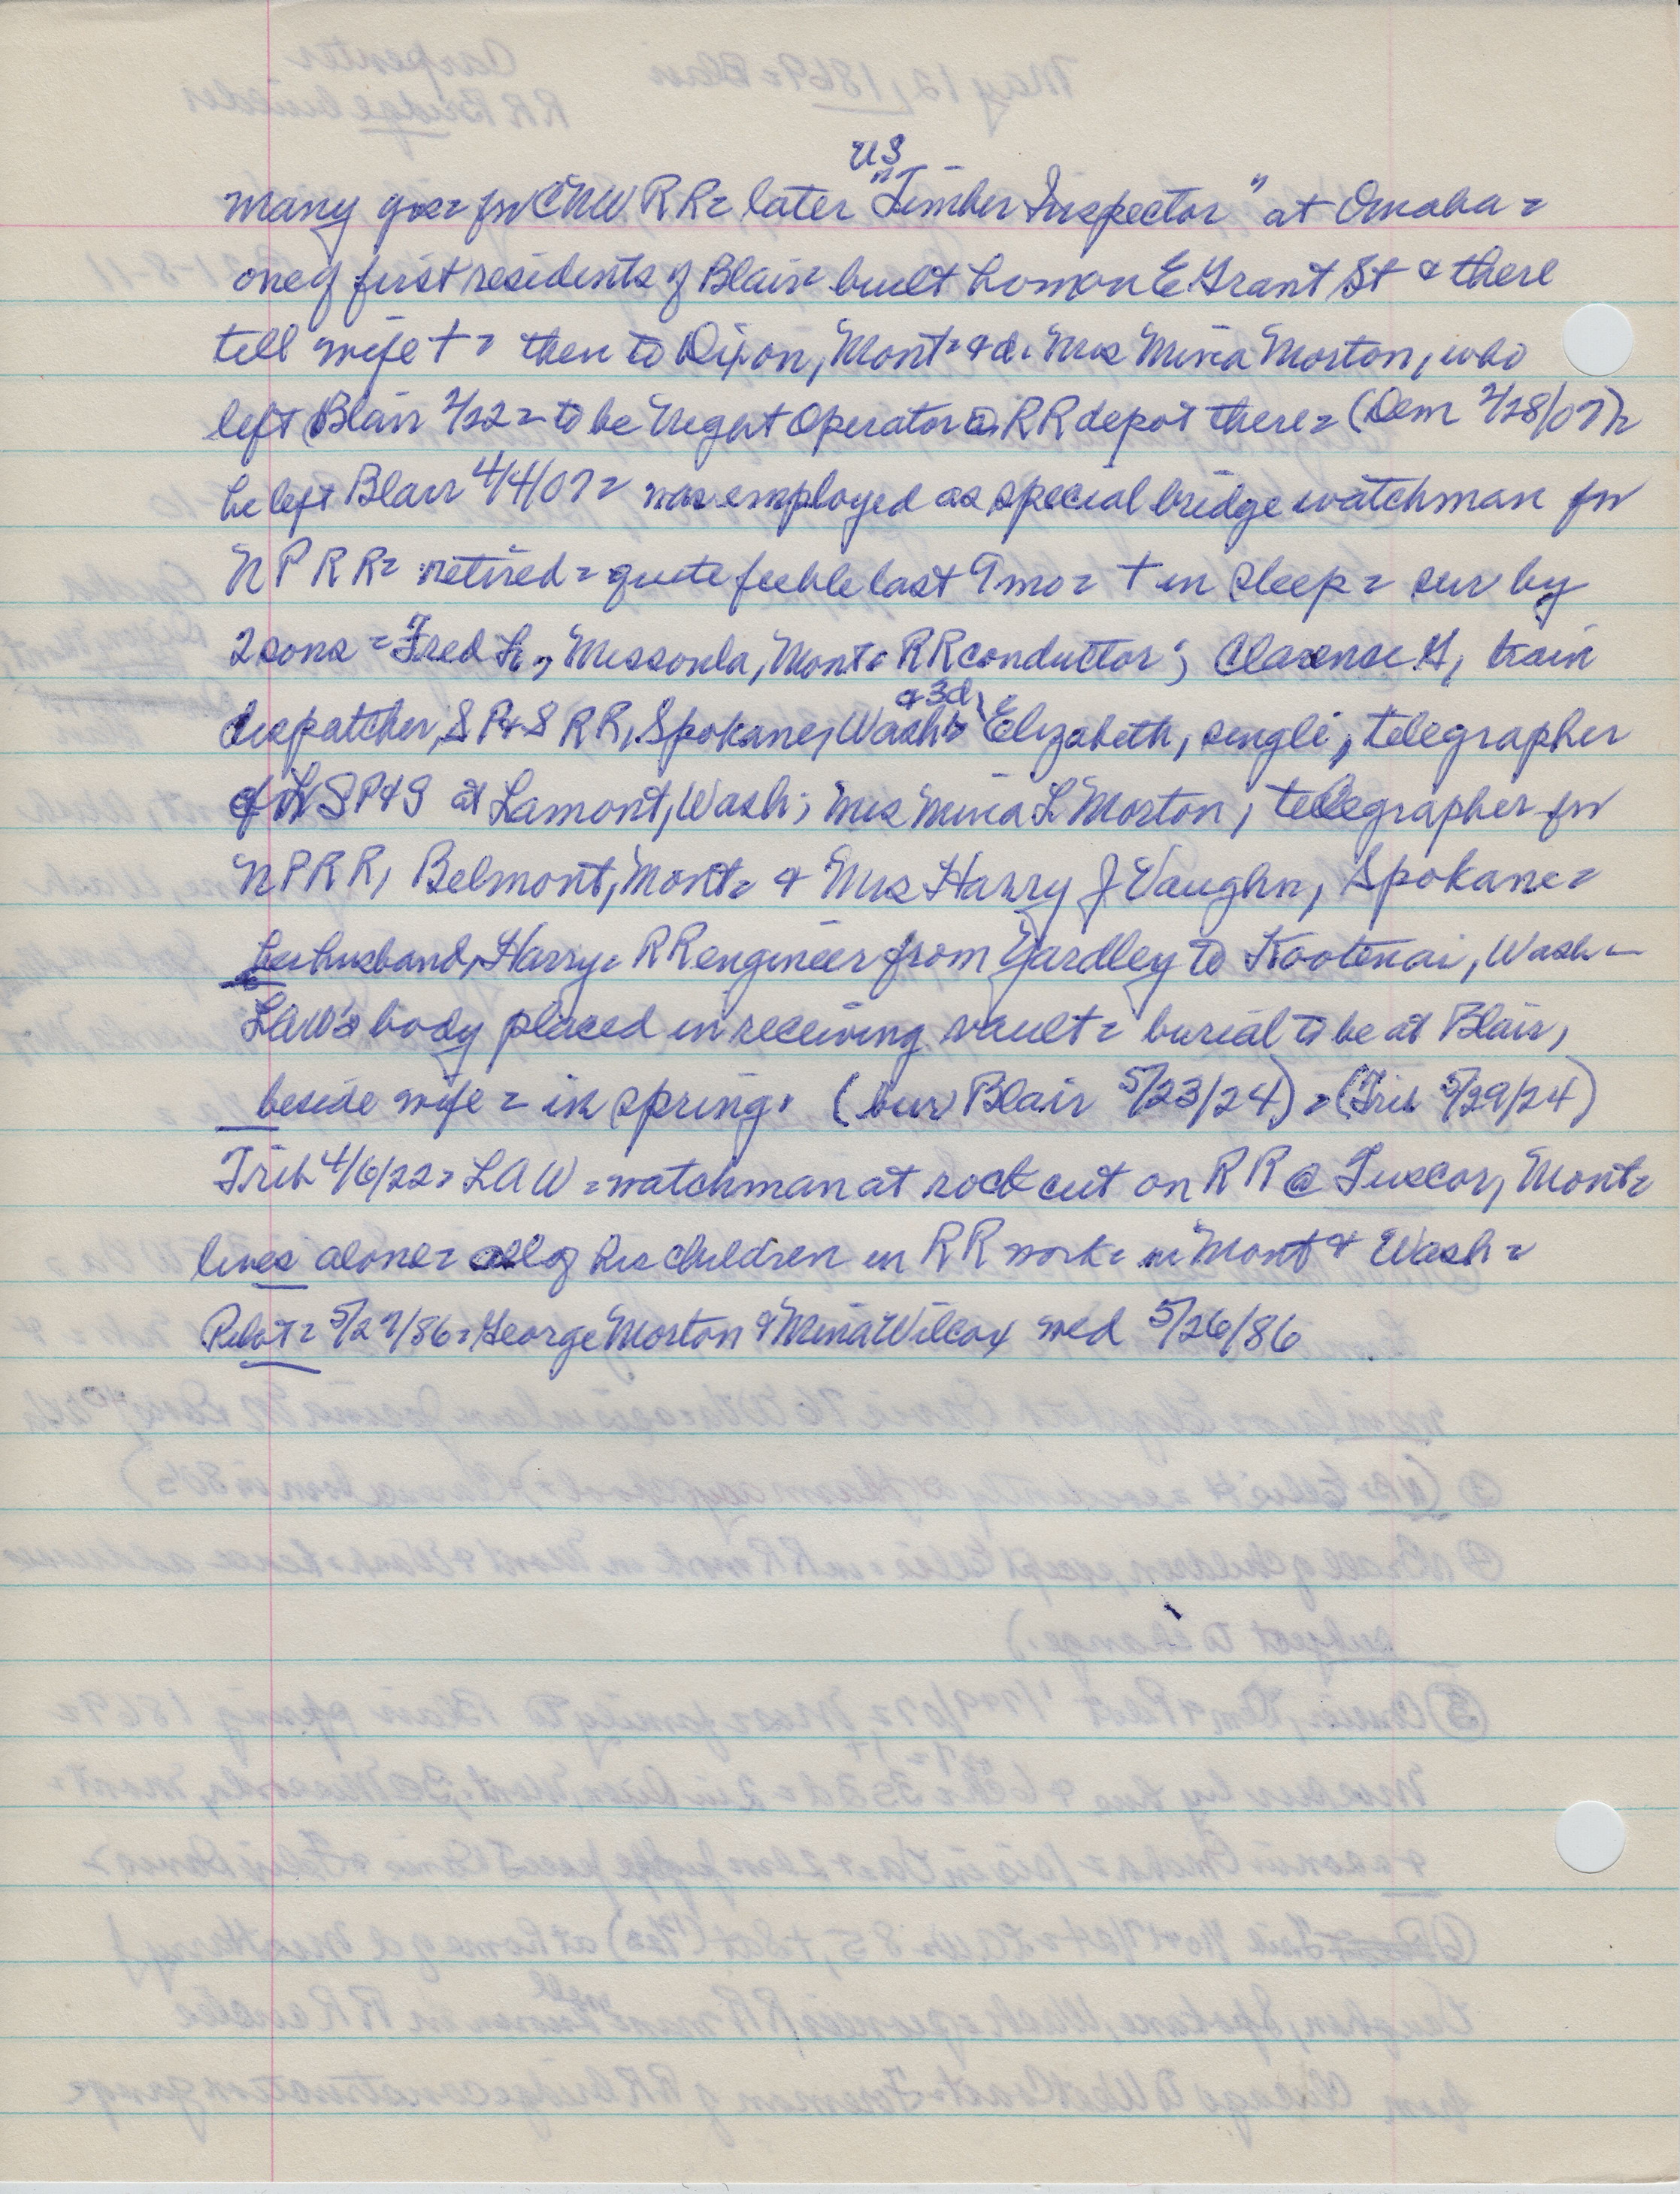 US
many yrs = for CNW RR = later "Timber Inspector" at Omaha =
one of first residents of Blair = built home on E Grant St & there
till wife † = then to Dixon, Mont = & d. Mrs Mina Morton, who
left Blair 2/22 = to be Night Operator @ RR depot there = (Dem 2/28/07) =
he left Blair 4/4/07 = was employed as special bridge watchman for
NPRR = retired = quite feeble last 9 mo = † in sleep = sur by
2 sons = Fred L., Missoula, Mont = RR conductor; Clarence G, train
& 3d,
dispatcher, SP&S RR, Spokane, Wash = Elizabeth, single, telegrapher
SP&S at Lamont, Wash; Mrs Mina L Morton, telegrapher for
NPRR, Belmont, Mont = & Mrs Harry J Vaughn, Spokane =
her husband, Harry = RR engineer from Yardley to Kootenai, Wash -
LAW's body placed in receiving vault = burial to be at Blair,
beside wife = in spring. (bur Blair 5/23/24) = (Trib 5/29/24)
Trib 4/6/22 = LAW = watchman at rock cut on RR @ Tuscor, Mont =
lives alone = all of his children in RR work = in Mont & Wash =
Pilot = 5/27/86 = George Morton & Mina Wilcox wed 5/26/86